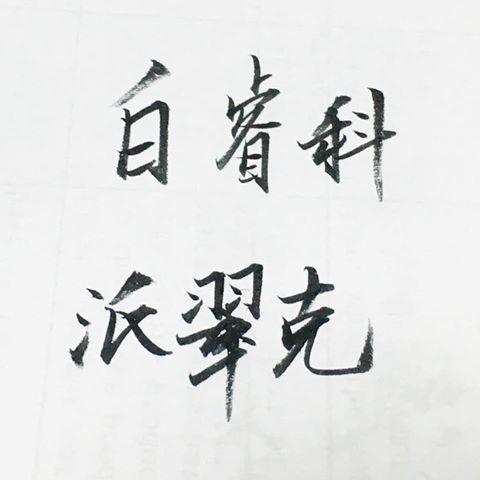 白睿科
派翠克